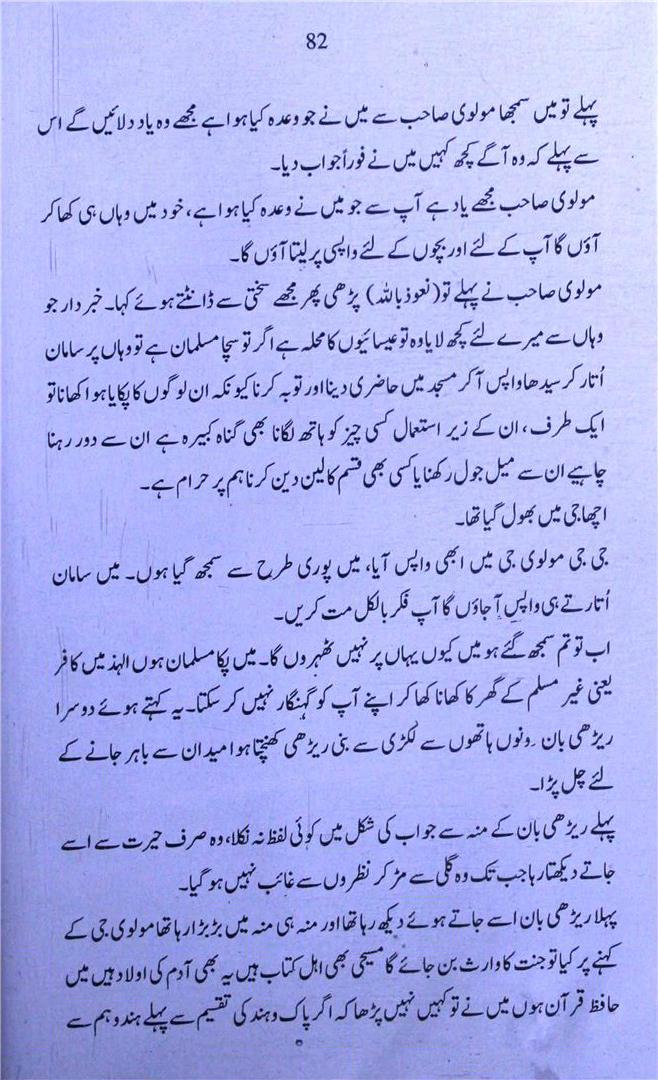 82
پہلے تو میں سمجھا مولوی صاحب سے میں نے جو وعدہ کیا ہوا ہے مجھے وہ یاد دلائیں گے اس
سے پہلے کہ وہ آگے کچھ کہیں میں نے فوراً جواب دیا۔
مولوی صاحب مجھے یاد ہے آپ سے جو میں نے وعدہ کیا ہوا ہے، خود میں وہاں ہی کھا کر
آؤں گا آپ کے لئے اور بچوں کے لئے واپسی پر لیتا آؤں گا۔
مولوی صاحب نے پہلے تو (نعوذ باللہ) پڑھی پھر مجھے سختی سے ڈانٹتے ہوئے کہا۔ خبر دار جو
وہاں سے میرے لئے کچھ لایا وہ تو عیسائیوں کا محلہ ہے اگر تو سچا مسلمان ہے تو وہاں پر سامان
اُتار کر سیدھا واپس آ کر مسجد میں حاضری دینا اور توبہ کرنا کیونکہ ان لوگوں کا پکایا ہوا کھانا تو
ایک طرف، ان کے زیر استعمال کسی چیز کو ہاتھ لگانا بھی گناہ کبیرہ ہے ان سے دور رہنا
چاہیے ان سے میل جول رکھنا یا کسی بھی قسم کا لین دین کرنا ہم پر حرام ہے۔
اچھا جی میں بھول گیا تھا۔
جی جی مولوی جی میں ابھی واپس آیا، میں پوری طرح سے سمجھ گیا ہوں۔ میں سامان
اُتارتے ہی واپس آ جاؤں گا آپ فکر بالکل مت کریں۔
اب تو تم سمجھ گئے ہو میں کیوں یہاں پر نہیں ٹھہروں گا۔ میں پکا مسلمان ہوں الہذ میں کافر
یعنی غیر مسلم کے گھر کا کھانا کھا کر اپنے آپ کو گنہگار نہیں کر سکتا۔ یہ کہتے ہوئے دوسرا
ریڑھی بان ۔ونوں ہاتھوں سے لکڑی سے بنی ریڑھی کھنچتا ہوا میدان سے باہر جانے کے
لئے چل پڑا۔
پہلے ریڑھی بان کے منہ سے جواب کی شکل میں کوئی لفظ نہ نکلا، وہ صرف حیرت سے اسے
جاتے دیکھتا رہا جب تک وہ گلی سے مڑ کر نظروں سے غائب نہیں ہو گیا۔
پہلا ریڑھی بان اسے جاتے ہوئے دیکھ رہا تھا اور منہ ہی منہ میں بڑبڑا رہا تھا مولوی جی کے
کہنے پر کیا تو جنت کا وارث بن جائے گا مسیحی بھی اہل کتاب ہیں یہ بھی آدم کی اولاد ہیں میں
حافظ قرآن ہوں میں نے تو کہیں نہیں پڑھا کہ اگر پاک و ہند کی تقسیم سے پہلے ہندو ہم سے